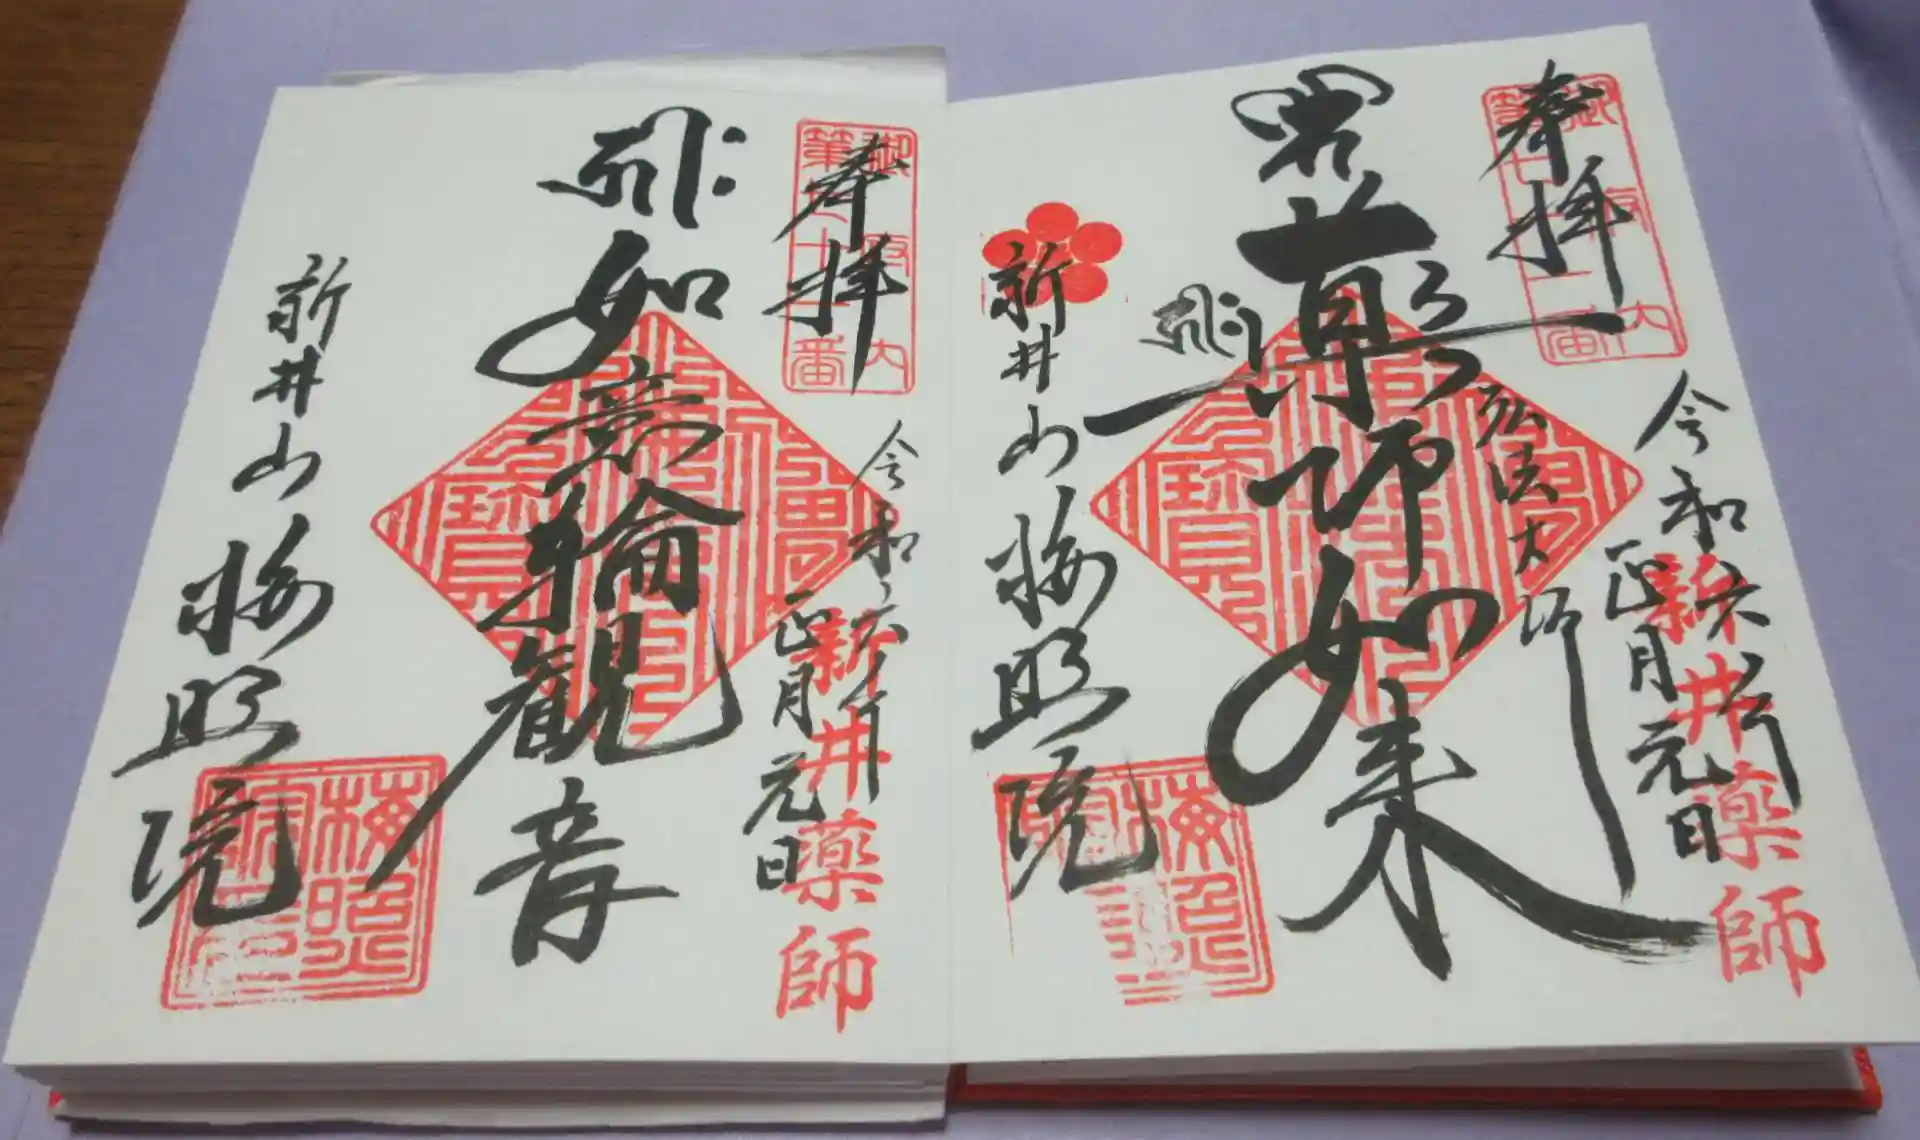 奉拝
令和六年
正月元日
新井薬師
薬師如来
弘法大師
新井山梅照院
梅照
奉拝
御府内
第七十一番
令和六年
正月元日
新井薬師
如意輪観音
新井山梅照院
梅照院